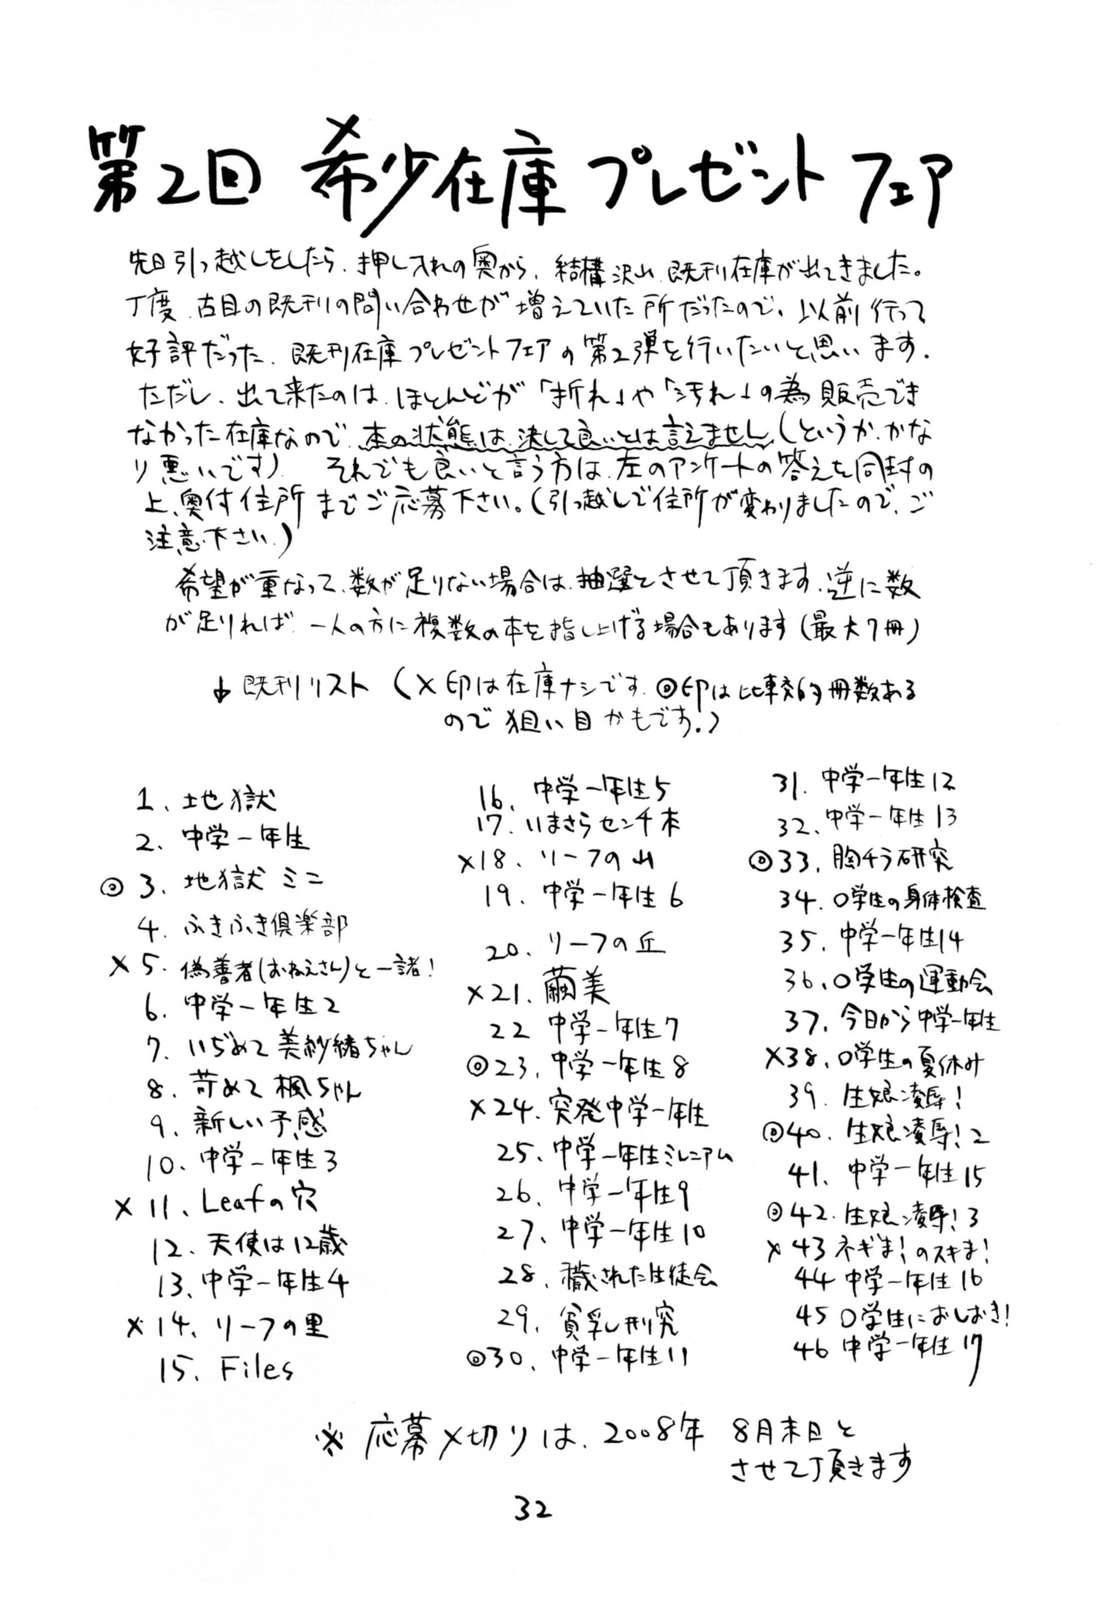 第2回 希少在庫プレゼントフェア
先日引っ越しをしたら、押し入れの奥から、結構沢山、既刊在庫が出てきました。
丁度、古目の既刊の問い合わせが増えていた所だったので、以前行って
好評だった、既刊在庫プレゼントフェアの第2弾を行いたいと思います。
ただし、出て来たのは、ほとんどが「折れ」や「汚れ」の為販売でき
なかった在庫なので、本の状態は、決して良いとは言えません(というか、かな
り悪いです)。それでも良いと言う方は、左のアンケートの答えを同封の
上、奥付住所までご応募下さい。(引っ越しで住所が変わりましたので、ご
注意下さい。)
希望が重なって、数が足りない場合は、抽選とさせて頂きます。逆に数
が足りれば、一人の方に複数の本を指し上げる場合もあります(最大7冊)
↓既刊リスト (×印は在庫ナシです。◎印は比較的冊数ある
ので狙い目かもです。)
1、地獄
2、中学一年生
◎3、地獄ミニ
4、ふきふき倶楽部
×5、偽善者(おねえさん)と一諸!
6、中学一年生2
7、いぢめて美紗緒ちゃん
8、苛めて楓ちゃん
9、新しい予感
10、中学一年生3
×11、Leafの穴
12、天使は12歳
13、中学一年生4
×14、リーフの里
15、Files
16、中学一年生5
17、いまさらセンチ本
×18、リーフの山
19、中学一年生6
20、リーフの丘
×21、繭美
22 中学一年生7
◎23、中学一年生8
×24、突発中学一年生
25、中学一年生ミレニアム
26、中学一年生9
27、中学一年生10
28、穢された生徒会
29、貧乳研究
◎30、中学一年生11
31、中学一年生12
32、中学一年生13
◎33、胸チラ研究
34、○学生の身体検査
35、中学一年生14
36、○学生の運動会
37、今日から中学一年生
×38、○学生の夏休み
39、生娘凌辱!
◎40、生娘凌辱!2
41、中学一年生15
◎42、生娘凌辱!3
×43 ネギま!のスキま!
44 中学一年生16
45 ○学生におしおき!
46 中学一年生17
※応募〆切りは、2008年 8月末日と
させて頂きます
32